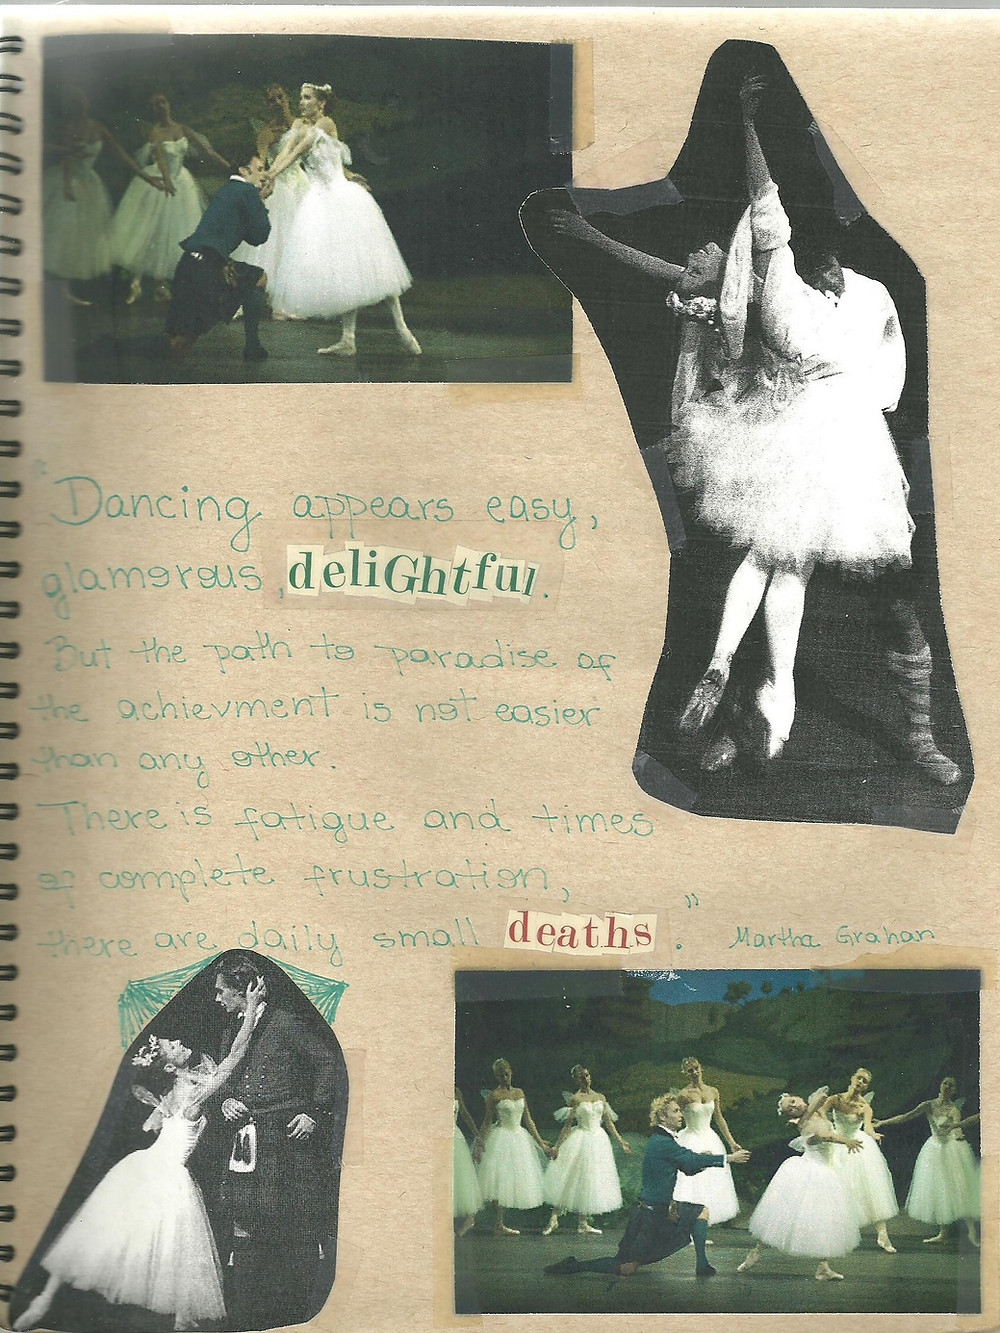 "Dancing appears easy,
glamorous, deliGhtful.
But the path to paradise of
the achievment is not easier
than any other.
There is fatigue and times
of complete frustration,
there are daily small deaths." Martha Grahan